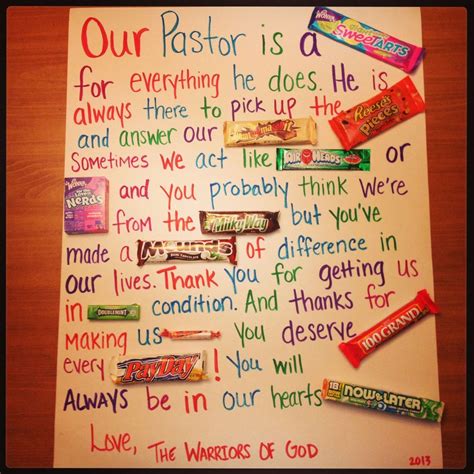 Our Pastor is a WONKA SWEETARTS
for everything he does. He is
always there to pick up the Reese's Pieces
and answer our
Sometimes we act like AIRHEADS or
Wonka Nerds and you probably think We're
from the MilkyWay but you've
made a MOUNDS of difference in
our lives. Thank you for getting us
in DOUBLEMINT condition. And thanks for
making us you deserve 100 GRAND
every PAYDAY! You will
ALWAYS be in our hearts NOW AND LATER
Love, THE WARRIORS OF GOD
2013